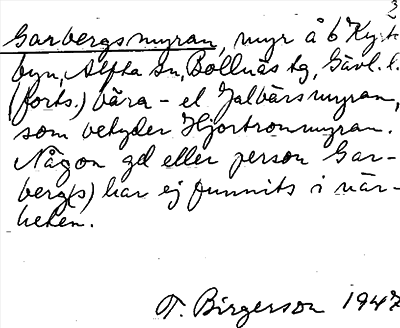 3
Garbergsmyran, myr å b Kyrk-
byn, Alfta sn, Bollnäs tg, Gävl. l.
(forts.) bära - el Jalbärsmyran,
som betyder Hjortronmyran.
Någon gd eller person Gar-
berg(s) har ej funnits i när-
heten.
T. Birgerson 1947